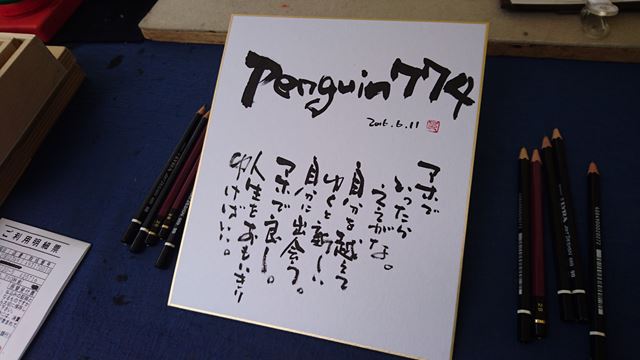 Penguin774
2016.6.11
アホで
いったら
ええがな。
自分を越えて
ゆくと新しい
自分に出会う。
アホで良し。
人生をおもいきり
ゆけばいい。
ご利用明細票
LYRA ART DESIGN